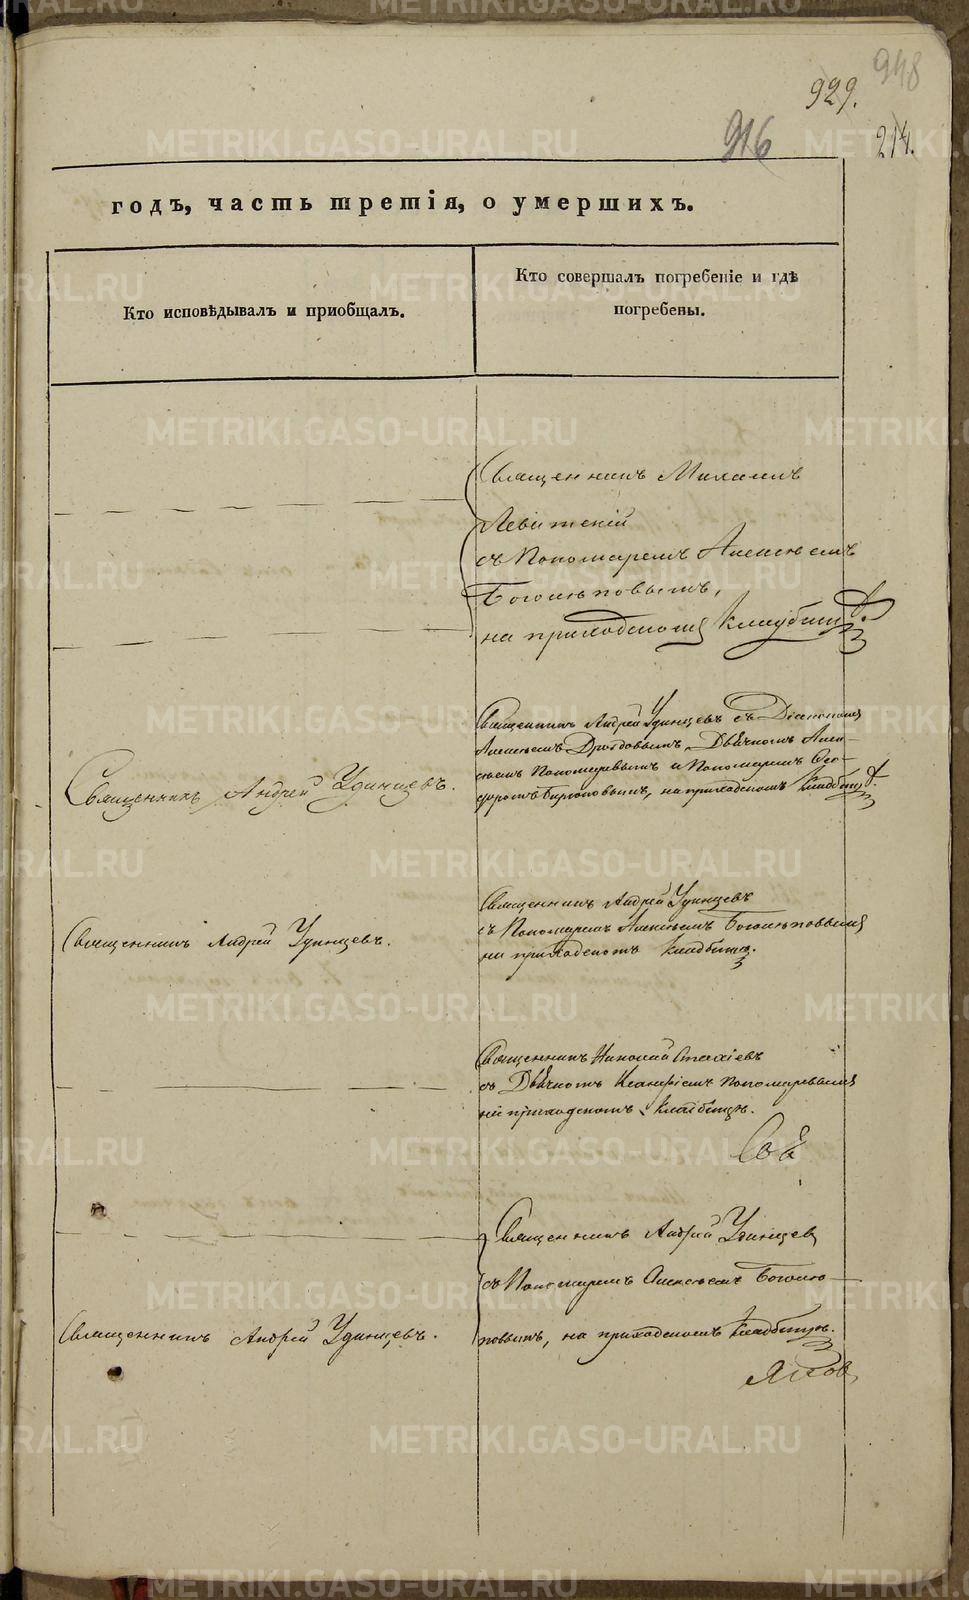 948
929.
916
214.
годъ, часть третія, о умершихъ.
Кто исповѣдывалъ и приобщалъ.
Кто совершалъ погребеніе и гдѣ
погребены.
Священникъ Михаилъ
Левитскій
съ Пономаремъ Алексѣемъ
Боголѣповымъ,
на приходскомъ Кладбищѣ.
Священникъ Андрей Удинцевъ съ Діакономъ
Алексѣемъ Дроздовымъ, Дьячкомъ Алек-
сѣемъ Пономаревымъ и Пономаремъ Ѳео-
доромъ на приходскомъ Кладбищѣ.
Священникъ Андрей Удинцевъ.
Священникъ Андрей Удинцевъ
съ Пономаремъ Алексѣемъ Боголѣповымъ
на приходскомъ Кладбищѣ.
Священникъ Андрей Удинцевъ.
Священникъ Николай Стахіевъ
съ Дьячкомъ Пономаревымъ
на приходскомъ Кладбищѣ.
Священникъ Андрей Удинцевъ
съ Пономаремъ Алексѣемъ Боголѣ-
повымъ, на приходскомъ Кладбищѣ.
Священникъ Андрей Удинцевъ.
Яков
METRIKI.GASO-URAL.RU